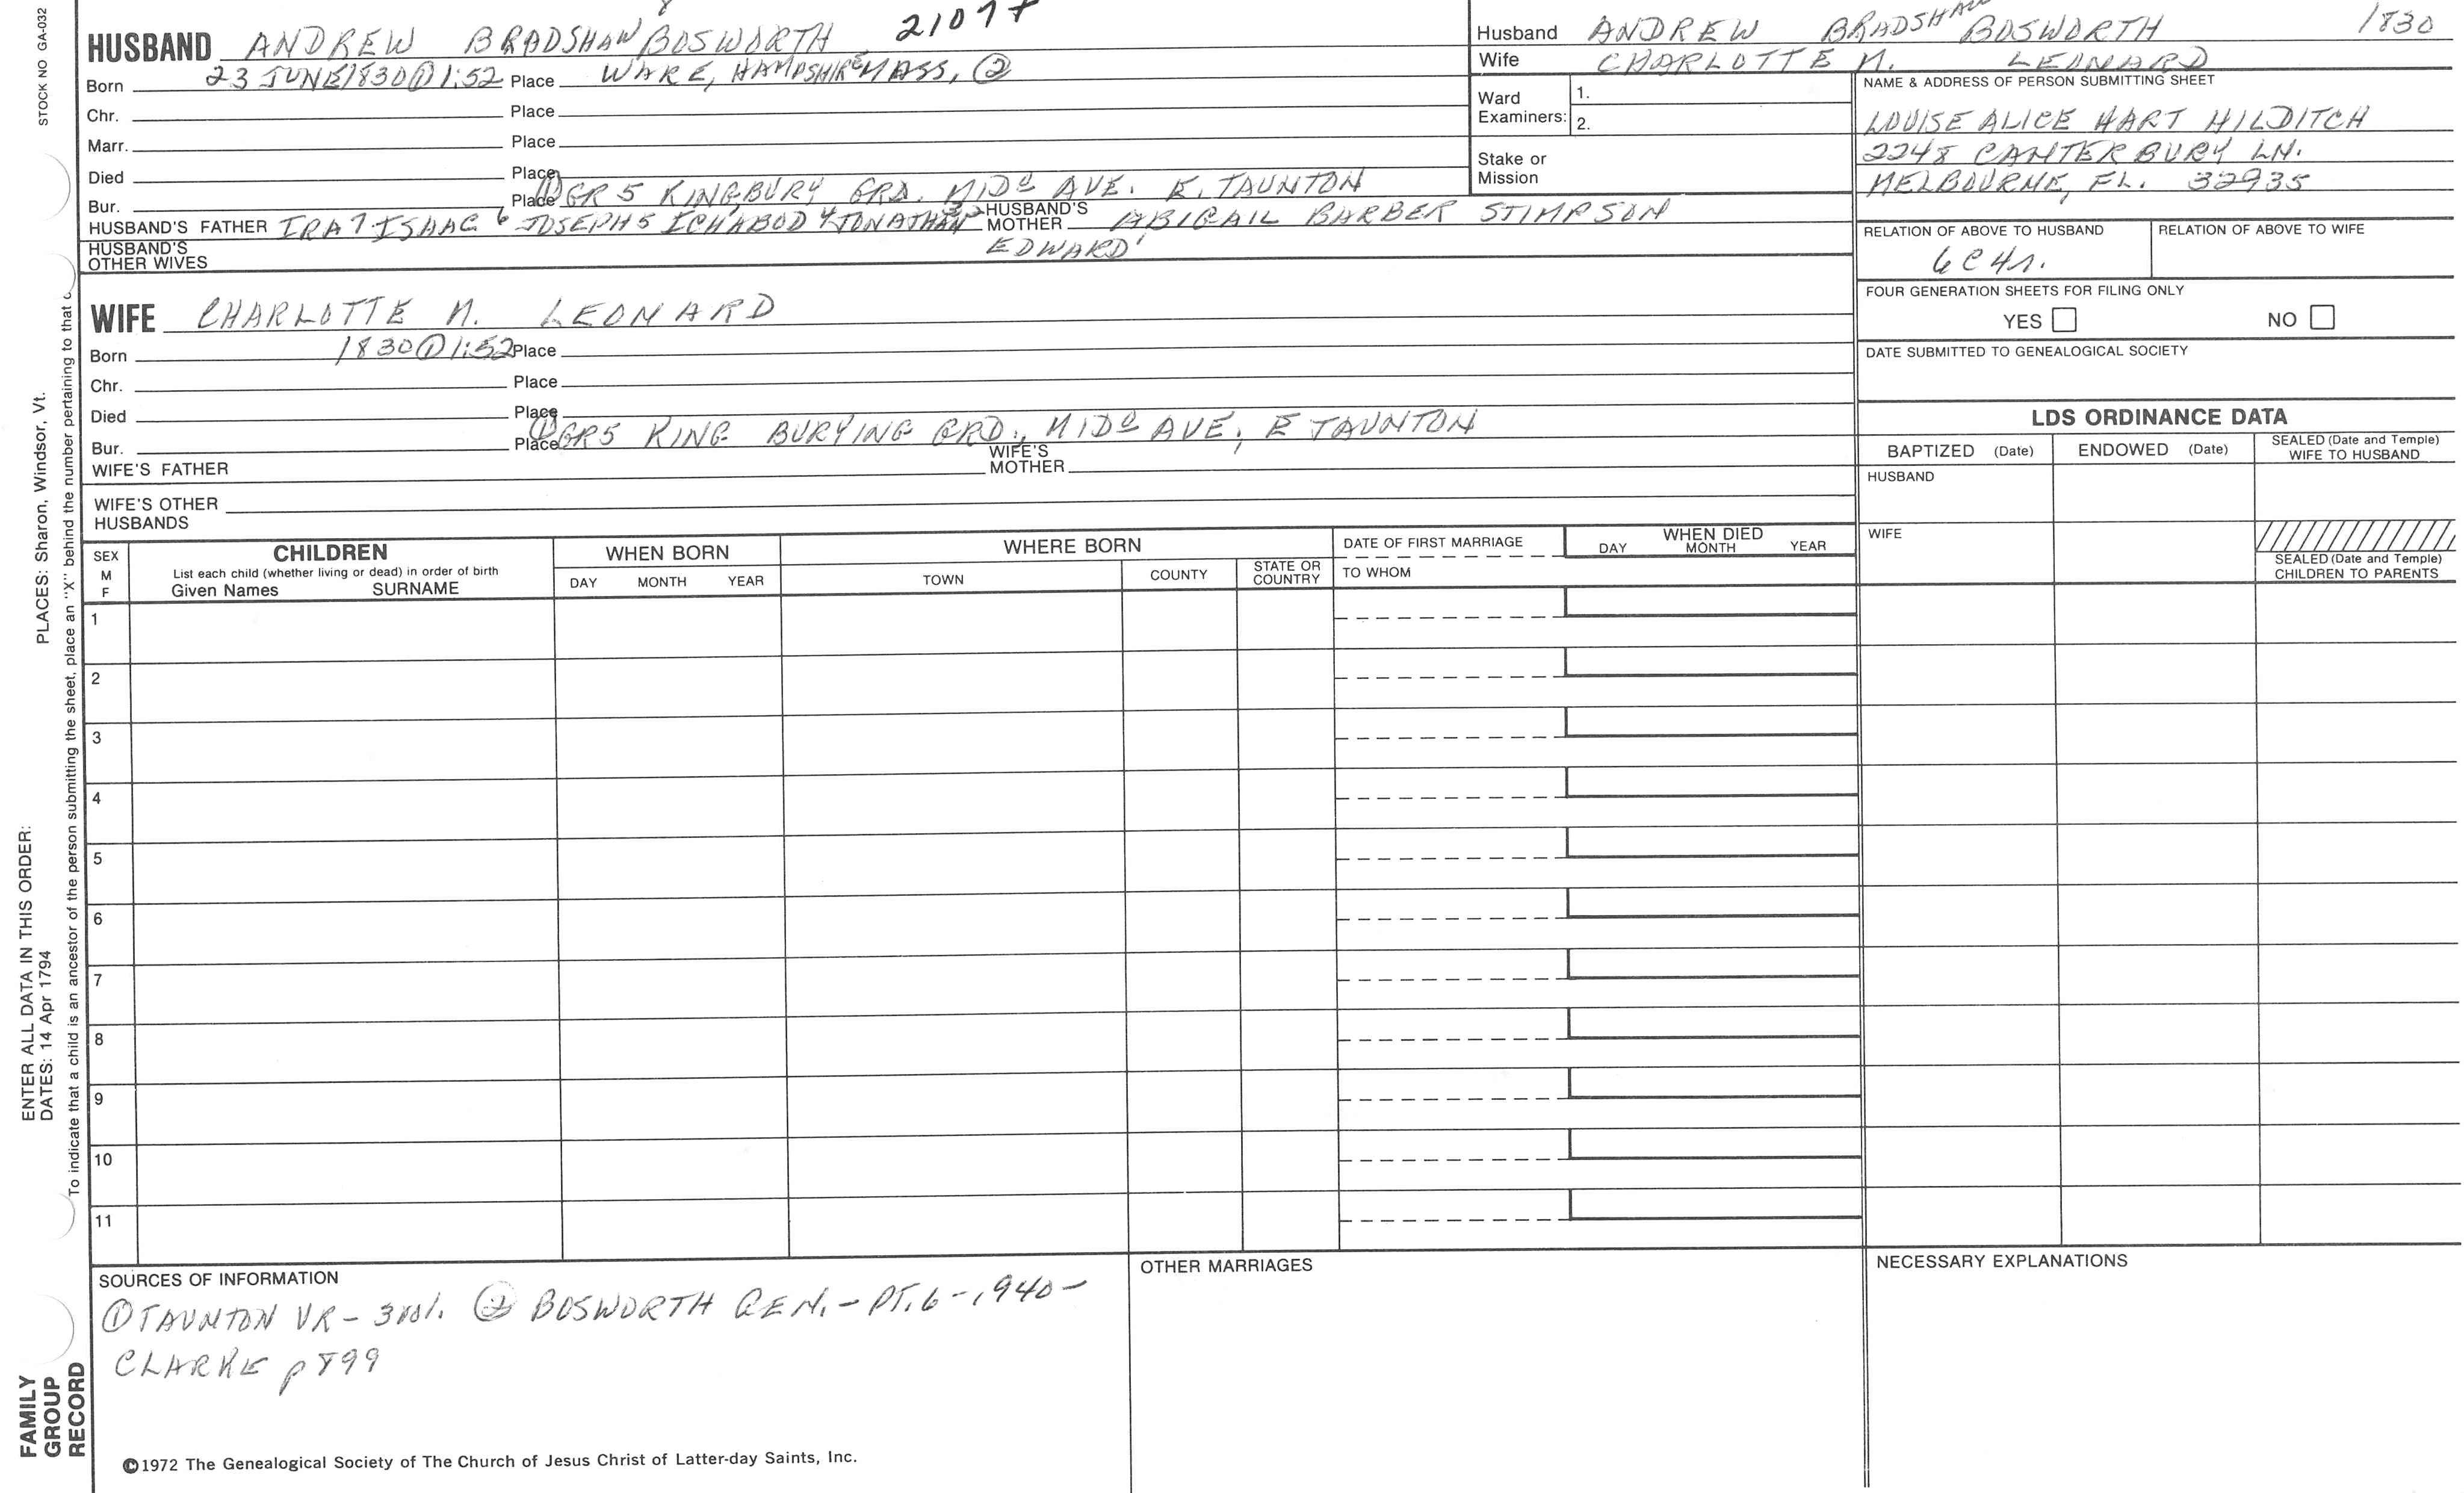 STOCK NO GA-032
21077
HUSBAND ANDREW BRADSHAW BOSWORTH
Born 23 JUNE 1830 ① 1:52 Place WARE, HAMPSHIRE MASS, ②
Chr. Place
Marr. Place
Died Place
Bur. Place ① GR 5 KINGBURY GRD. MIDº AVE. E. TAUNTON
HUSBAND'S FATHER IRA 7 ISAAC 6 JOSEPH 5 ICHABOD 4 JONATHAN HUSBAND'S MOTHER ABIGAIL BARBER STIMPSON
EDWARD'
HUSBAND'S OTHER WIVES
Husband ANDREW BRADSHAW BOSWORTH 1830
Wife CHARLOTTE M. LEONARD
Ward Examiners: 1.
2.
Stake or Mission
NAME & ADDRESS OF PERSON SUBMITTING SHEET
LOUISE ALICE HART HILDITCH
2248 CANTERBURY LN.
MELBOURNE, FL. 32935
RELATION OF ABOVE TO HUSBAND RELATION OF ABOVE TO WIFE
6C4r.
FOUR GENERATION SHEETS FOR FILING ONLY
YES NO
DATE SUBMITTED TO GENEALOGICAL SOCIETY
WIFE CHARLOTTE M. LEONARD
Born 1830 ① 1:52 Place
Chr. Place
Died Place
Bur. Place ① GR5 KING BURYING GRD., MIDº AVE, E TAUNTON
WIFE'S FATHER WIFE'S MOTHER
WIFE'S OTHER HUSBANDS
LDS ORDINANCE DATA
BAPTIZED (Date) ENDOWED (Date) SEALED (Date and Temple) WIFE TO HUSBAND
HUSBAND
WIFE
SEALED (Date and Temple) CHILDREN TO PARENTS
SEX M F
CHILDREN
List each child (whether living or dead) in order of birth
Given Names SURNAME
WHEN BORN
DAY MONTH YEAR
WHERE BORN
TOWN COUNTY STATE OR COUNTRY
DATE OF FIRST MARRIAGE
TO WHOM
WHEN DIED
DAY MONTH YEAR
1
2
3
4
5
6
7
8
9
10
11
SOURCES OF INFORMATION
① TAUNTON VR - ② BOSWORTH GEN. - PT. 6 - 1940 -
CLARKE p 899
OTHER MARRIAGES
NECESSARY EXPLANATIONS
©1972 The Genealogical Society of The Church of Jesus Christ of Latter-day Saints, Inc.
FAMILY GROUP RECORD
ENTER ALL DATA IN THIS ORDER:
DATES: 14 Apr 1794
PLACES: Sharon, Windsor, Vt.
To indicate that a child is an ancestor of the person submitting the sheet, place an "X" behind the number pertaining to that